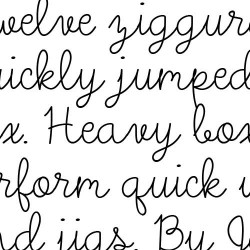 welve ziggura
uickly jumped
x. Heavy box
rform quick w
nd jigs. By J